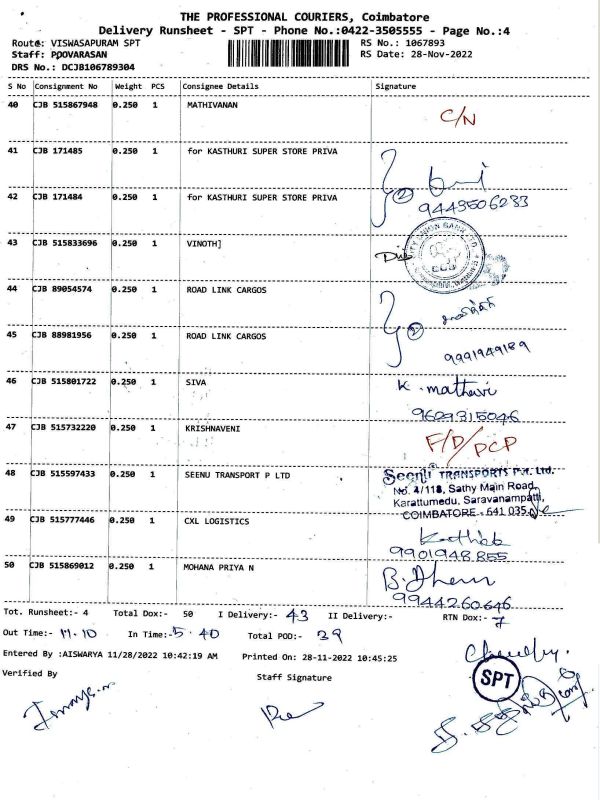 THE PROFESSIONAL COURIERS, Coimbatore
Delivery Runsheet - SPT - Phone No.:0422-3505555 - Page No.:4
Route: VISWASAPURAM SPT RS No.: 1067893
Staff: POOVARASAN RS Date: 28-Nov-2022
DRS No.: DCJB106789304
S No Consignment No Weight PCS Consignee Details Signature
40 CJB 515867948 0.250 1 MATHIVANAN C/N
41 CJB 171485 0.250 1 for KASTHURI SUPER STORE PRIVA
42 CJB 171484 0.250 1 for KASTHURI SUPER STORE PRIVA 2 9443506233
43 CJB 515833696 0.250 1 VINOTH]
44 CJB 89054574 0.250 1 ROAD LINK CARGOS
45 CJB 88981956 0.250 1 ROAD LINK CARGOS 2 9991949189
46 CJB 515801722 0.250 1 SIVA K. mathevi
9629315046
47 CJB 515732220 0.250 1 KRISHNAVENI F/D/PCP
48 CJB 515597433 0.250 1 SEENU TRANSPORT P LTD Seenu TRANSPORTS Pvt. Ltd.
No. 4/118, Sathy Main Road,
Karattumedu, Saravanampatti,
COIMBATORE - 641 035
49 CJB 515777446 0.250 1 CXL LOGISTICS Karthik
9901948855
50 CJB 515869012 0.250 1 MOHANA PRIYA N
9944260646
Tot. Runsheet:- 4 Total Dox:- 50 I Delivery:- 43 II Delivery:- RTN Dox:- 7
Out Time:- 11.10 In Time:- 5.40 Total POD:- 39
Entered By :AISWARYA 11/28/2022 10:42:19 AM Printed On: 28-11-2022 10:45:25
Verified By Staff Signature
SPT